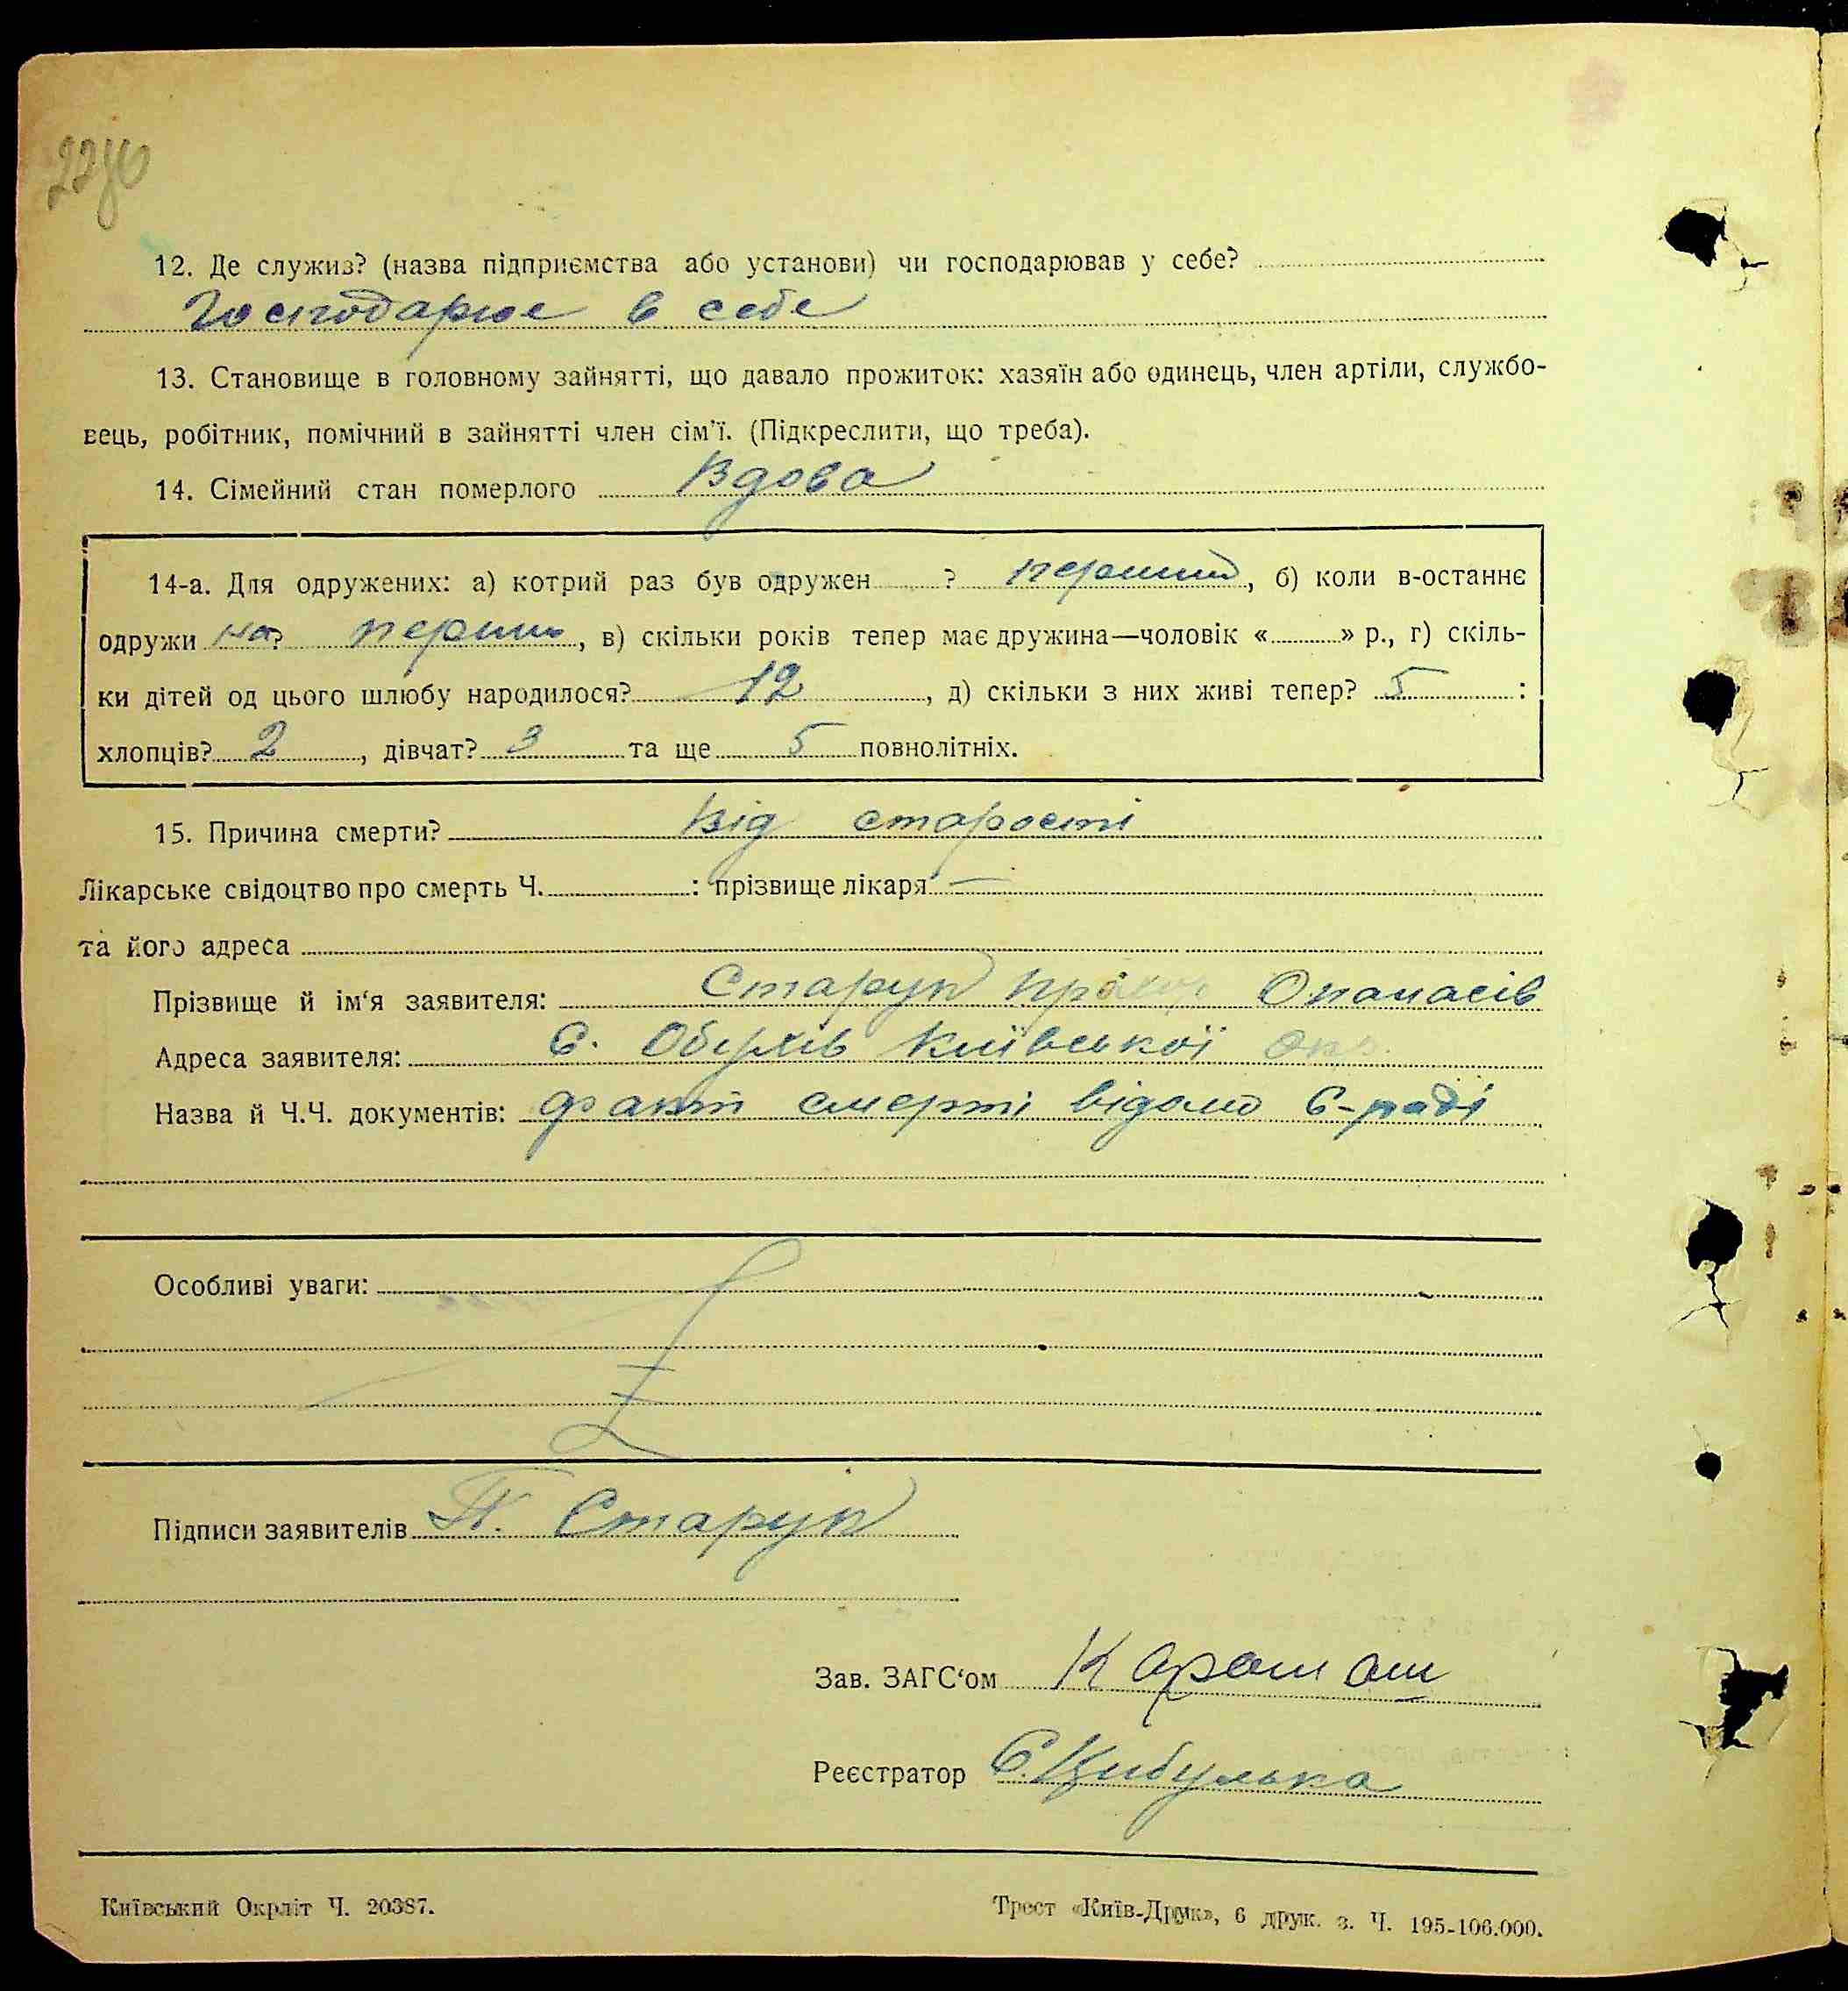 12. Де служив? (назва підприємства або установи) чи господарював у себе?
Господарює в себе
13. Становище в головному зайнятті, що давало прожиток: хазяїн або одинець, член артіли, службо-
вець, робітник, помічний в зайнятті член сім'ї. (Підкреслити, що треба).
14. Сімейний стан померлого Вдова
14-а. Для одружених: а) котрий раз був одружен ? перший, б) коли в-останнє
одружи на? перший, в) скільки років тепер має дружина—чоловік « » р., г) скіль-
ки дітей од цього шлюбу народилося? 12, д) скільки з них живі тепер? 5 :
хлопців? 2, дівчат? 3 та ще 5 повнолітніх.
15. Причина смерти? від старости
Лікарське свідоцтво про смерть Ч. : прізвище лікаря —
та його адреса
Прізвище й ім'я заявителя: Старун Опанасів
Адреса заявителя: С. Обухів Київської окр.
Назва й Ч.Ч. документів: факт смерті відомо С-раді
Особливі уваги:
Підписи заявителів П. Старун
Зав. ЗАГС'ом
Реєстратор Є. Цибулька
Київський Окрліт Ч. 20387.
Трест «Київ-Друк», 6 друк. з. Ч. 195-106.000.